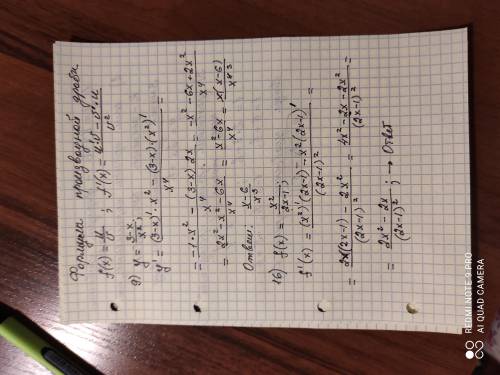 Формула производной дроби.
f(x) = u/v ; f'(x) = (u'v - v'·u)/v²
9) y = (3-x)/x² ;
y' = ((3-x)'·x² - (3-x)·(x²)')/x⁴ =
= (-1·x² - (3-x)·2x)/x⁴ = (-x² - 6x + 2x²)/x⁴
= (2x² - x² - 6x)/x⁴ = (x² - 6x)/x⁴ = x(x-6)/x⁴ ³
Ответ: (x-6)/x³
16) f(x) = x²/(2x-1) ;
f'(x) = ((x²)'(2x-1) - x²(2x-1)')/(2x-1)² =
= (2x(2x-1) - 2x²)/(2x-1)² = (4x² - 2x - 2x²)/(2x-1)² =
= (2x² - 2x)/(2x-1)² ; → Ответ
REDMI NOTE 9 PRO
AI QUAD CAMERA